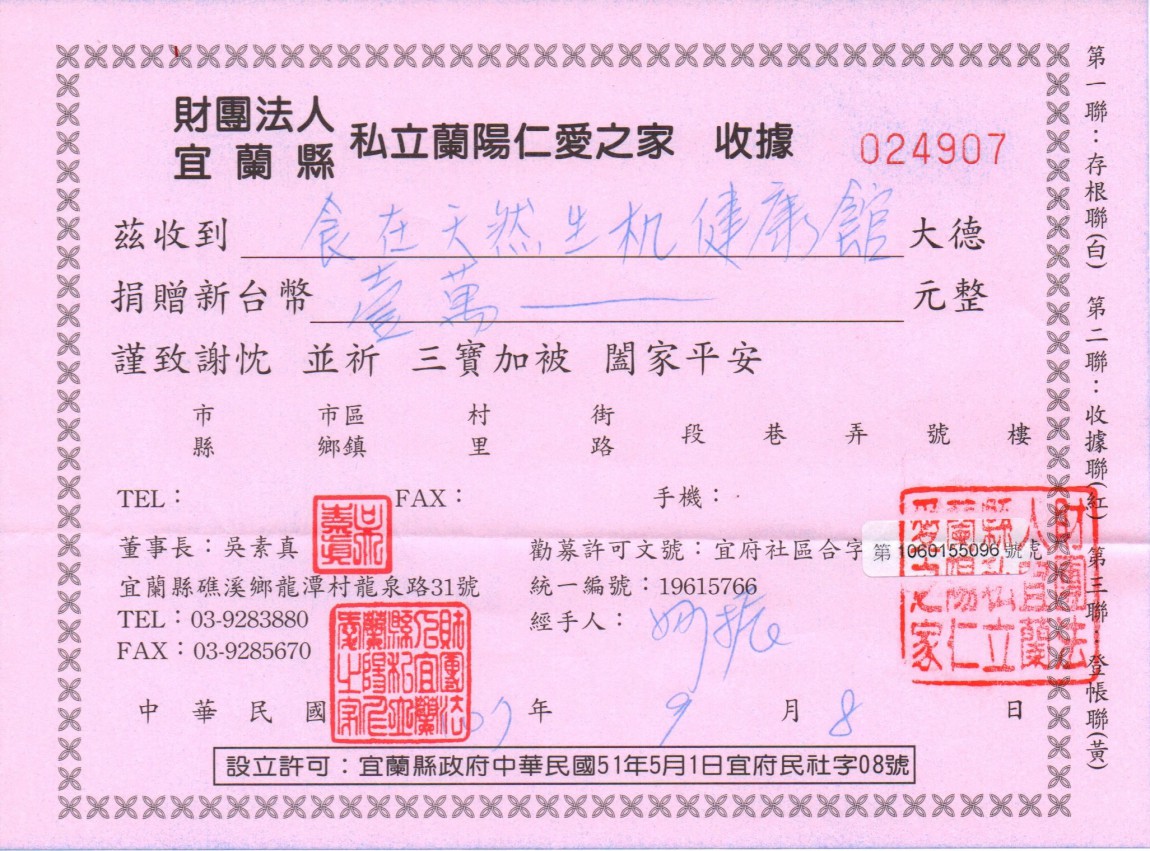 財團法人
宜蘭縣 私立蘭陽仁愛之家 收據 024907
茲收到 食在天然生机健康館 大德
捐贈新台幣 壹萬 元整
謹致謝忱 並祈 三寶加被 闔家平安
市 市區 村 街
縣 鄉鎮 里 路 段 巷 弄 號 樓
TEL： FAX： 手機：
董事長：吳素真 勸募許可文號：宜府社區合字第1060155096號
宜蘭縣礁溪鄉龍潭村龍泉路31號 統一編號：19615766
TEL：03-9283880 經手人：
FAX：03-9285670
中華民國 07 年 9 月 8 日
設立許可：宜蘭縣政府中華民國51年5月1日宜府民社字08號
第一聯：存根聯(白) 第二聯：收據聯(紅) 第三聯：登帳聯(黃)
吳素真
財團法人宜蘭縣私立蘭陽仁愛之家
財團法人宜蘭縣私立蘭陽仁愛之家